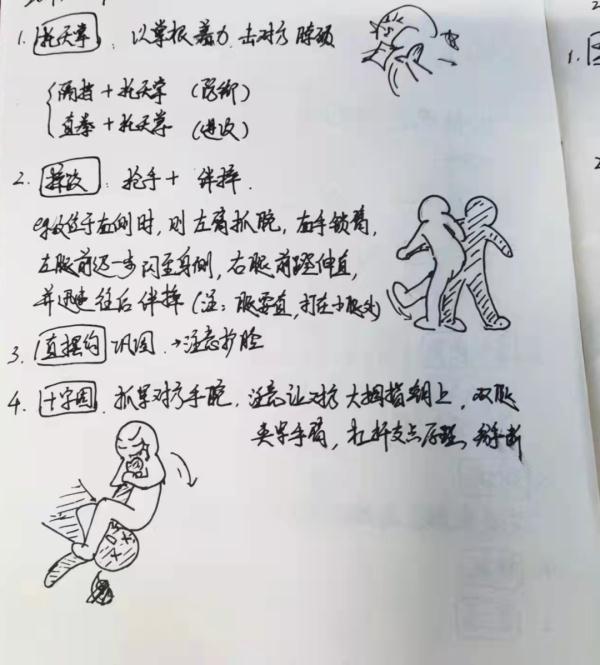 1. 托天掌：以掌根着力，击对方脖颌
两挡+托天掌（防御）
直拳+托天掌（进攻）
2. 摔投：抢手+绊摔.
当敌位于右侧时，则左臂抓腕，右手锁臂，
左腿前迈一步闪至身侧，右腿前踢伸直，
并迅速往后绊摔（注：腿要直，打在小腿处）
3. 直摆勾 巩固→注意护脸
4. 十字固. 抓牢对方手腕，注意让对方大拇指朝上，双腿
夹牢手臂，杠杆支点原理，掰手断
1.
2